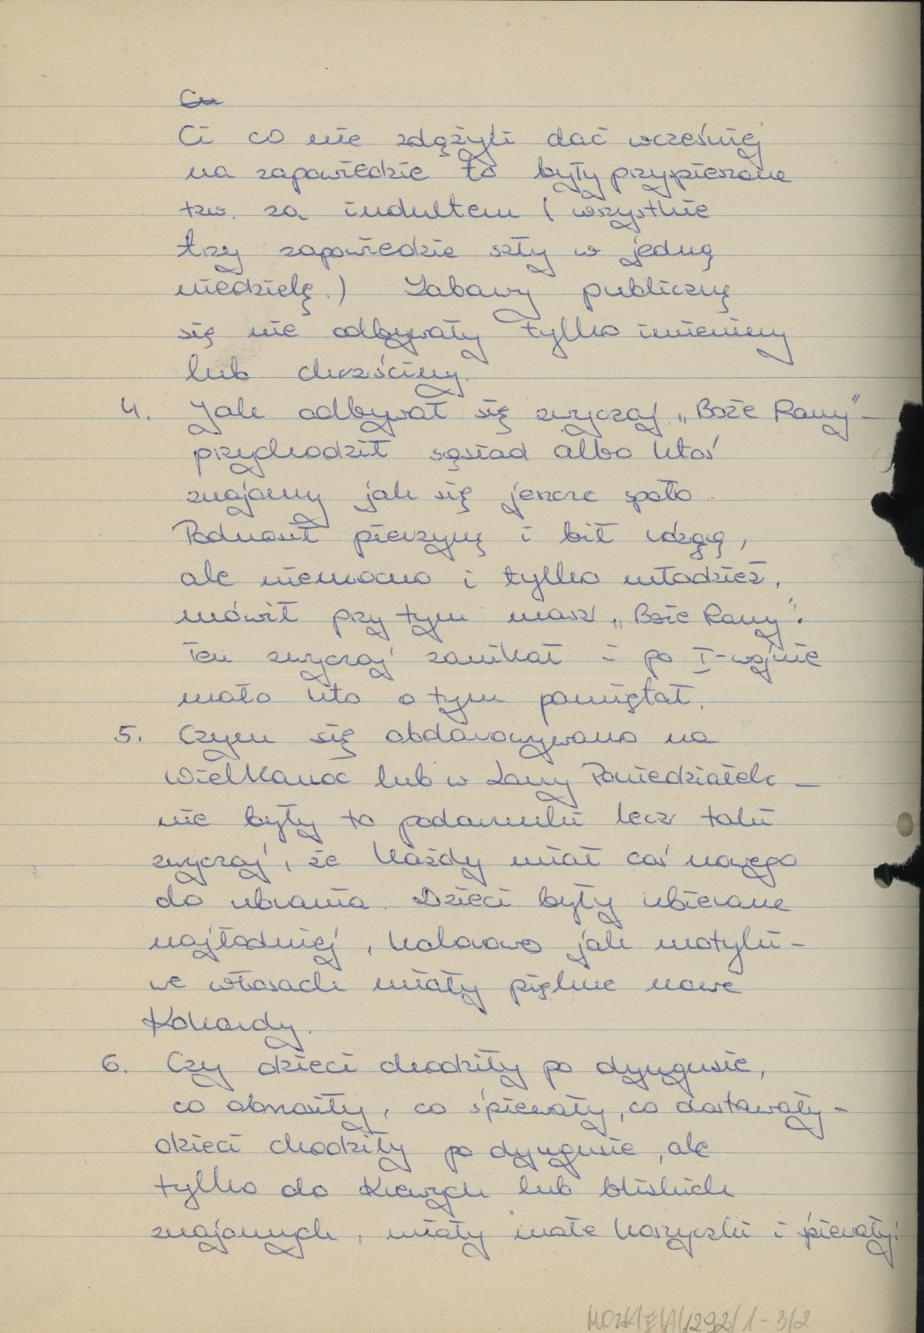 Ci co nie zdążyli dać wcześniej
na zapowiedzie to były przypierane
tzw. za indultem ( wszystkie
trzy zapowiedzie szły w jedną
niedzielę.) Zabawy publiczną
się nie odbywały tylko imieniny
lub chrzściny.
4. Jak odbywał się zwyczaj „Boże Rany” –
przychodził sąsiad albo ktoś
znajomy jak się jeszcze spało.
Podnosił pierzynę i bił rózgą,
ale niemocno i tylko młodzież,
mówił przy tym masz „Boże Rany”.
Ten zwyczaj zanikał i po I-wojnie
mało kto o tym pamiętał.
5. Czym się obdarowywano na
Wielkanoc lub w Lany Poniedziałek –
nie były to podarunki lecz taki
zwyczaj, że każdy miał coś nowego
do ubrania. Dzieci były ubierane
najładniej, kolorowo jak motylki –
we włosach miały piękne nowe
kokardy.
6. Czy dzieci chodziły po dyngusie,
co obnosiły, co śpiewały, co dostawały –
dzieci chodziły po dyngusie, ale
tylko do krewnych lub bliskich
znajomych, miały małe koszyczki i śpiewały: